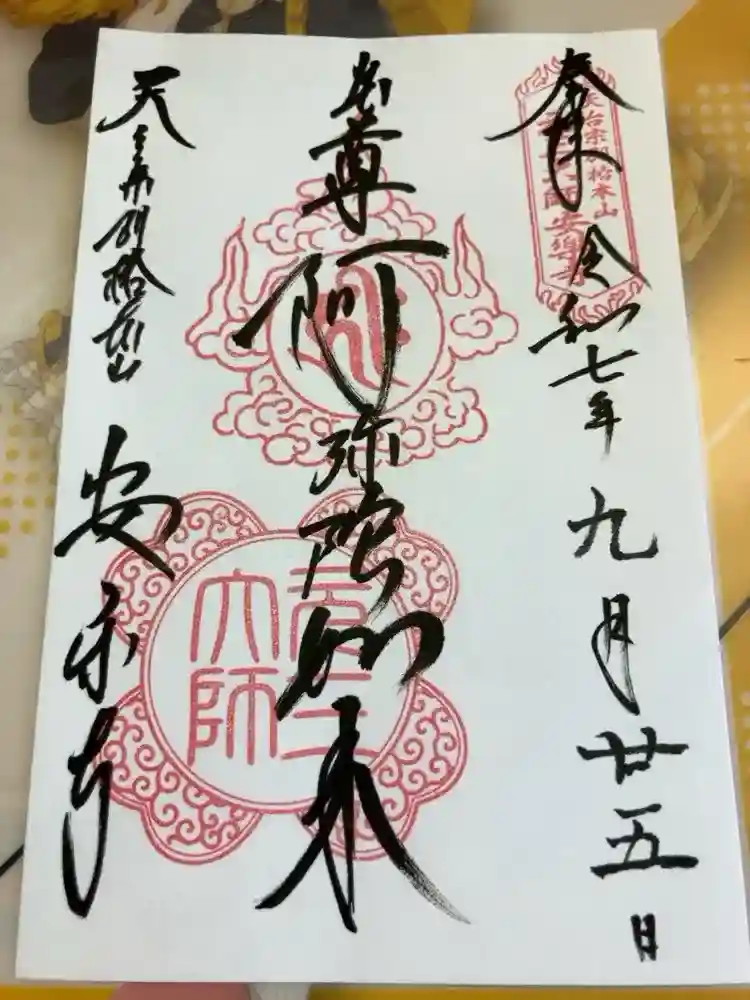 奉拝 令和七年九月廿五日
天台宗別格本山
元三大師安樂寺
本尊 阿弥陀如来
元三大師
天台宗別格本山
安樂寺